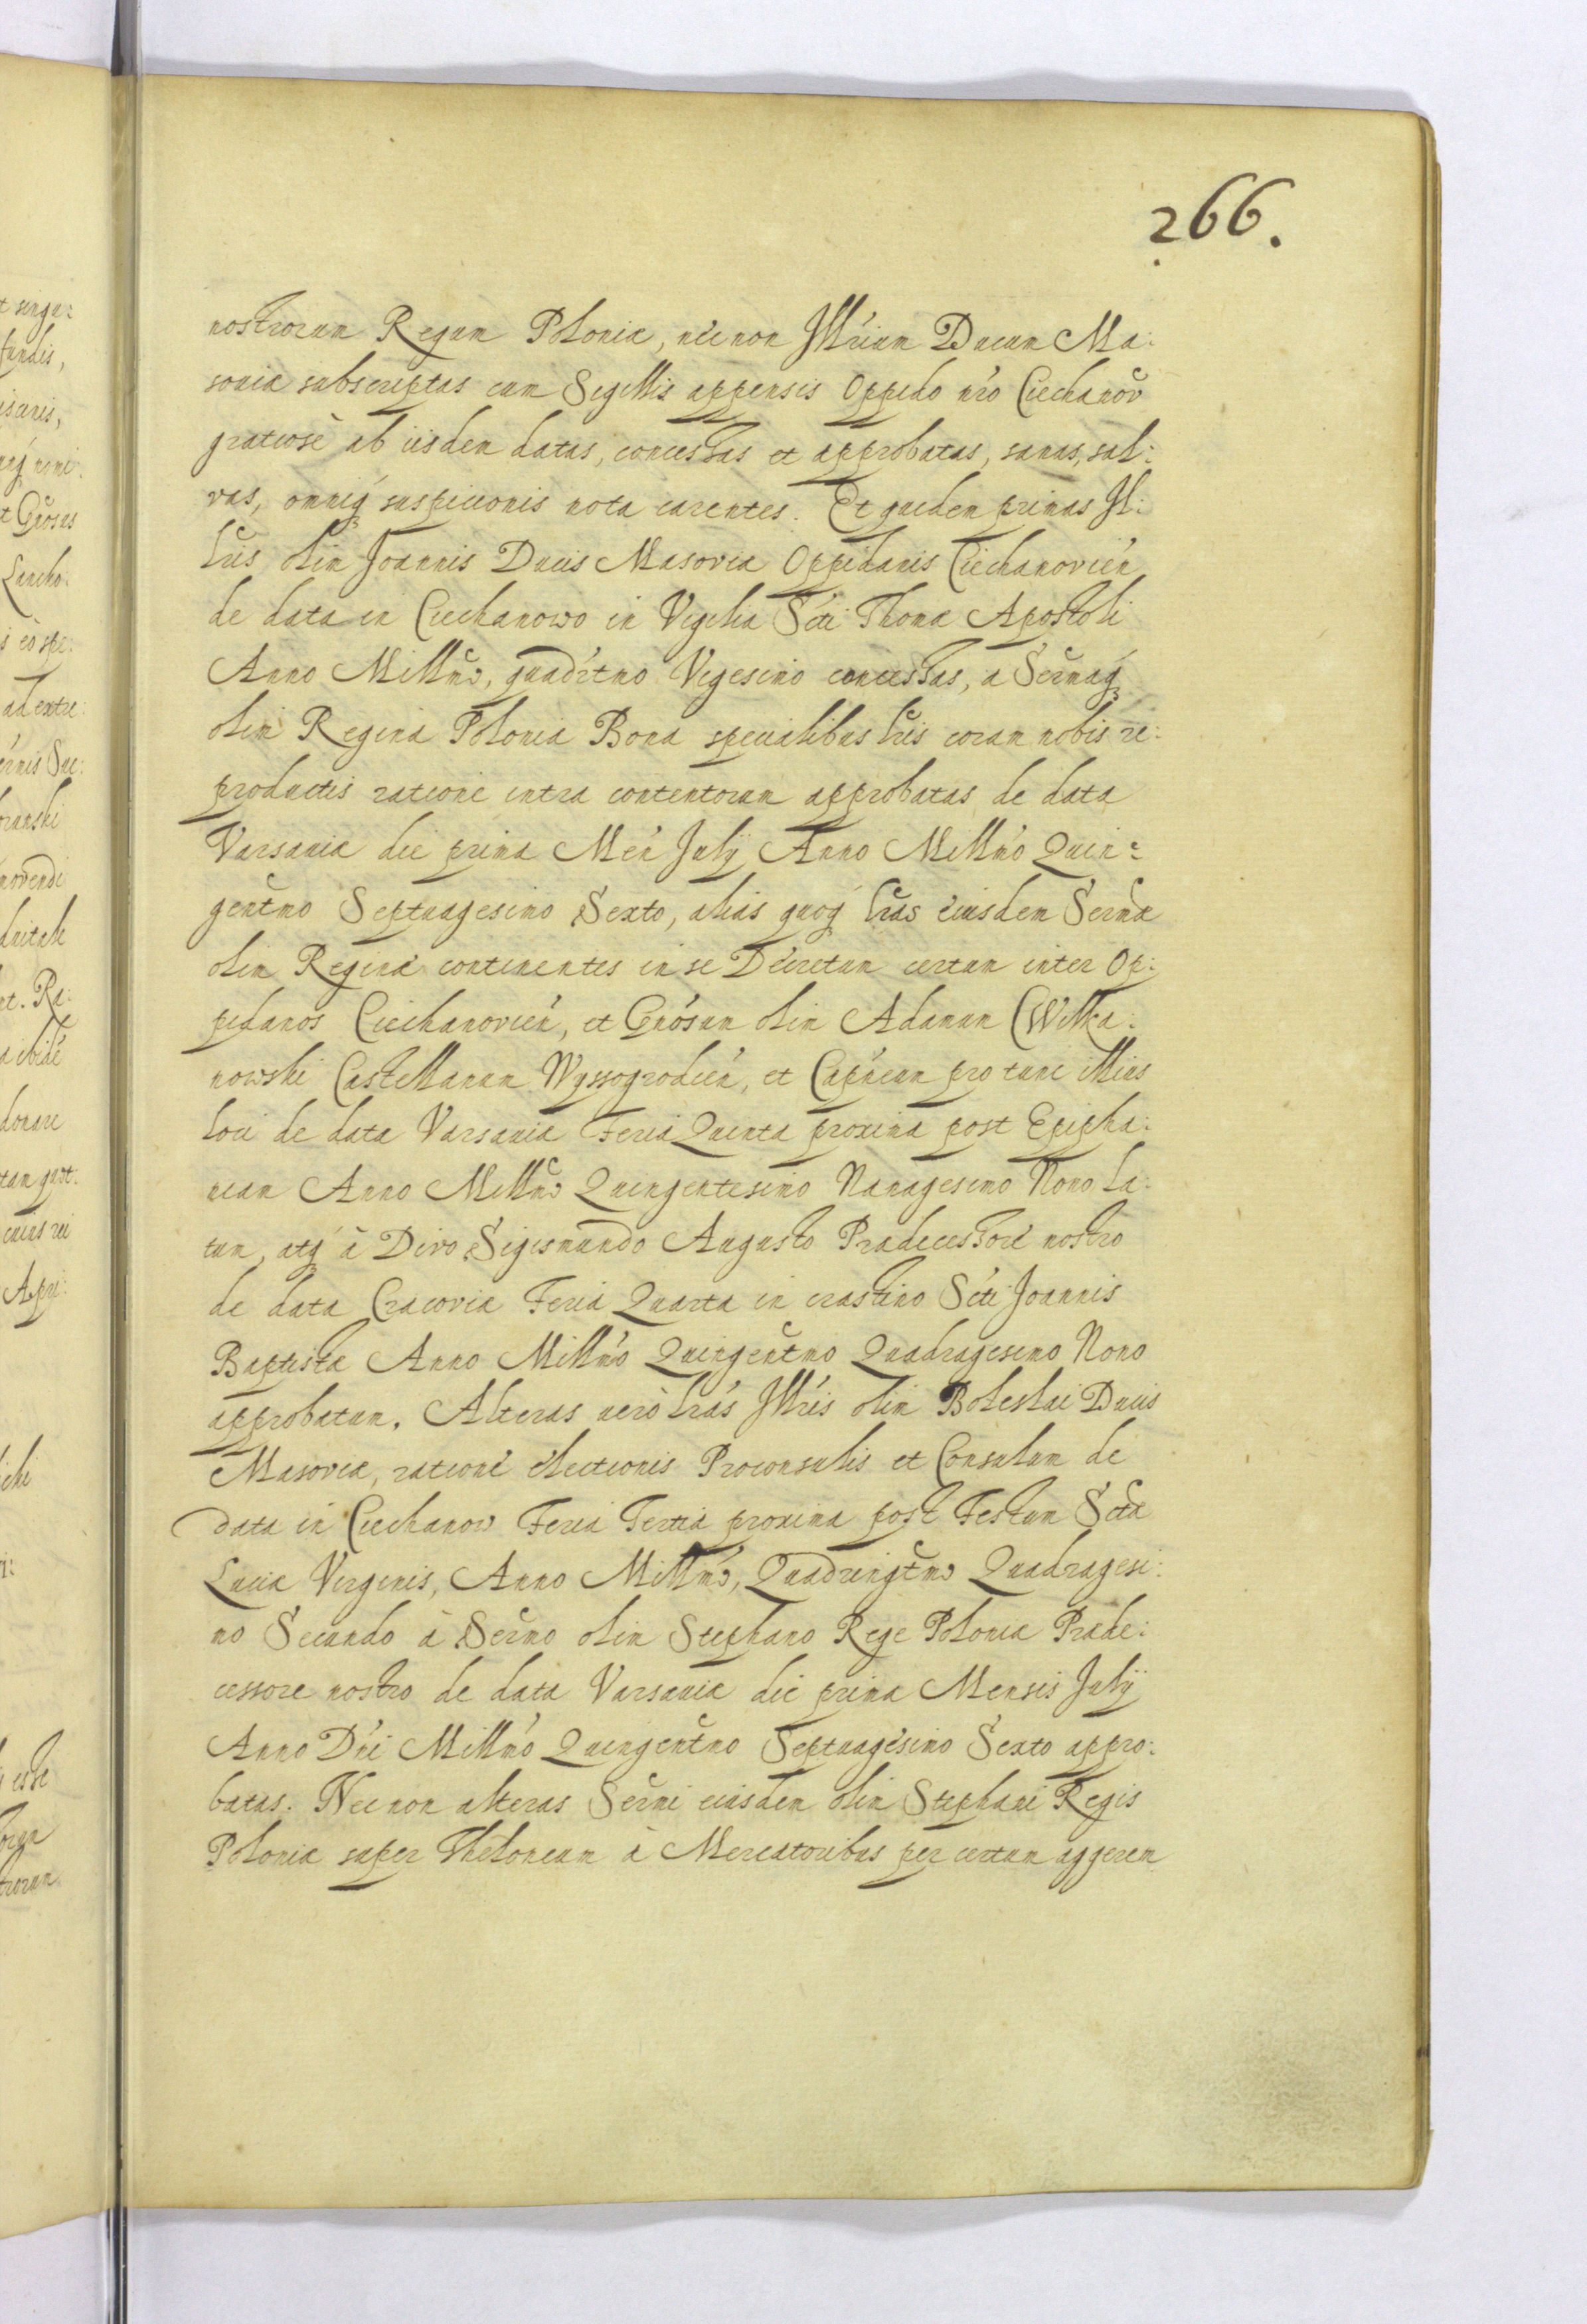 266.
nostrorum Regum Poloniæ, necnon Illr̃ium Ducum Ma:
souiæ subscriptas cum Sigillis appensis Oppido nr̃o Ciechanow̃
gratiosè ab iisdem datas, concessas et approbatas, sanas, sal:
vas, omniq́ suspitionis nota carentes. Et quidem primas Il:
lr̃is olim Joannis Ducis Masoviæ Oppidanis Ciechanovień
de data in Ciechanowo in Vigilia Sc̃ti Thomæ Apostoli
Anno Millmõ, quadr̃tmo Vigesimo concessas, a Serm̃aq́
olim Regina Polonia Bona specialibus lr̃is coram nobis re:
productis ratione intra contentorum approbatas de data
Varsauiæ die prima Meń July Anno Millm̃o Quin:
gent̃mo Septuagesimo Sexto, alias quoq́ lr̃as eiusdem Serm̃æ
olim Reginæ continentes in se Decretum certum inter Op:
pidanos Ciechanovień, et Gñosum olim Adamum Wilka:
nowski Castellanum Wyssogrodień, et Capñeum pro tunc illius
loci de data Varsauiæ Feria Quinta proxima post Epipha:
niam Anno Millmõ Quingentesimo Nanagesimo Nono La:
tum, atq́ à Divo Sigismundo Augusto Prædecessore nostro
de data Cracoviæ Feria Quarta in crastino Sc̃ti Joannis
Baptistæ Anno Millm̃o Quingent̃mo Quadragesimo Nono
approbatum. Alteras uerò lr̃as Illr̃is olim Boleslai Ducis
Masoviæ, ratione electionis Proconsulis et Consulum de
data in Ciechanow Feria Tertia proxima post Festum Sc̃tæ
Luciæ Virginis, Anno Millmõ, Quadringt̃mo Quadragesi:
mo Secundo à Serm̃o olim Stephano Rege Poloniæ Præde:
cessore nostro de data Varsauiæ die prima Mensis July
Anno Dñi Millm̃o Quingent̃mo Septuagesimo Sexto appro:
batas. Necnon alteras Serm̃i eiusdem olim Stephani Regis
Poloniæ super Theloneum à Mercatoribus per certum aggerem